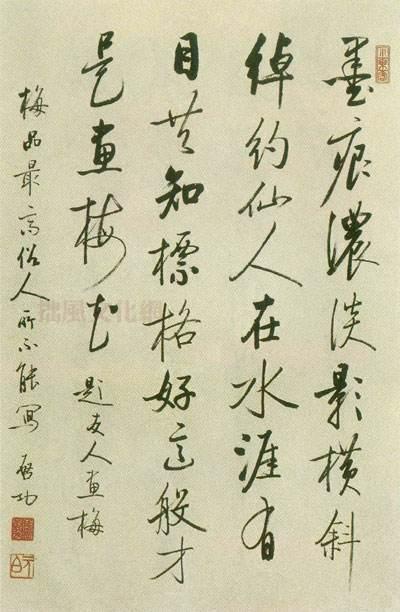 墨痕濃淡影橫斜
綽約仙人在水涯有
目共知標格好這般才
是畫梅花 題友人畫梅
梅品最高俗人所不能寫 啟功
拙風文化網